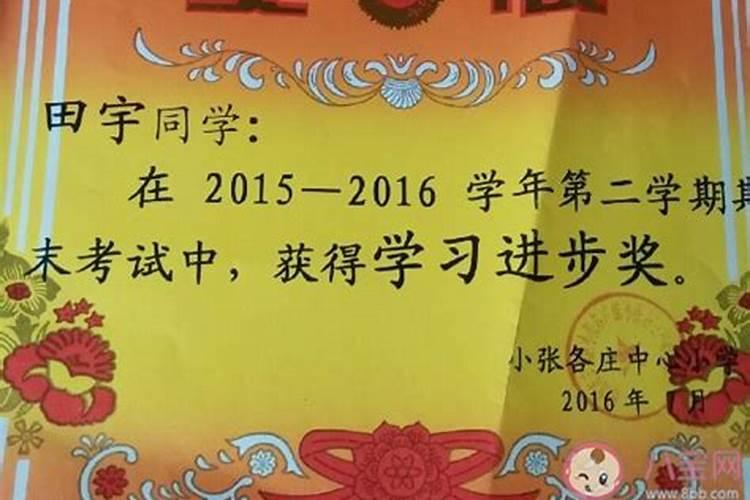 田宇同学：
在 2015—2016 学年第二学期期
末考试中，获得学习进步奖。
小张各庄中心小学
2016 年 月
八宝网
www.8bb.com